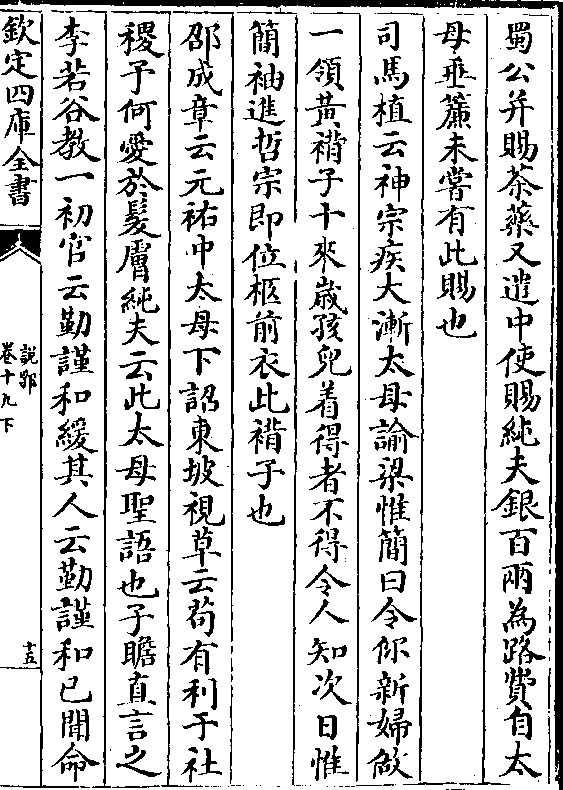 蜀公并賜茶藥又遣中使賜純夫銀百兩為路費自太
母垂簾未嘗有此賜也
司馬植云神宗疾大漸太母諭梁惟簡曰令你新婦做
一領黃褙子十來歲孩兒着得者不得令人知次日惟
簡袖進哲宗即位柩前衣此褙子也
邵成章云元祐中太母下詔東坡視草云苟有利于社
稷予何愛於髮膚純夫云此太母聖語也子瞻直言之
李若谷教一初官云勤謹和緩其人云勤謹和已聞命
欽定四庫全書
說郛
卷十九下
十五